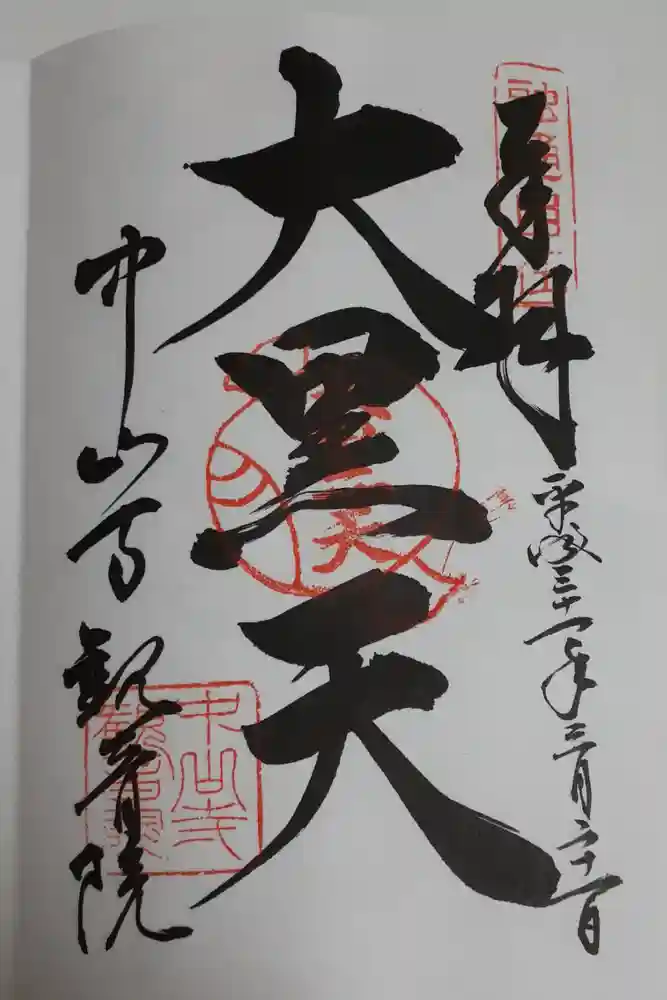 奉拝
平成三十一年三月二十一日
大黒天
中山寺
観音院
中山寺